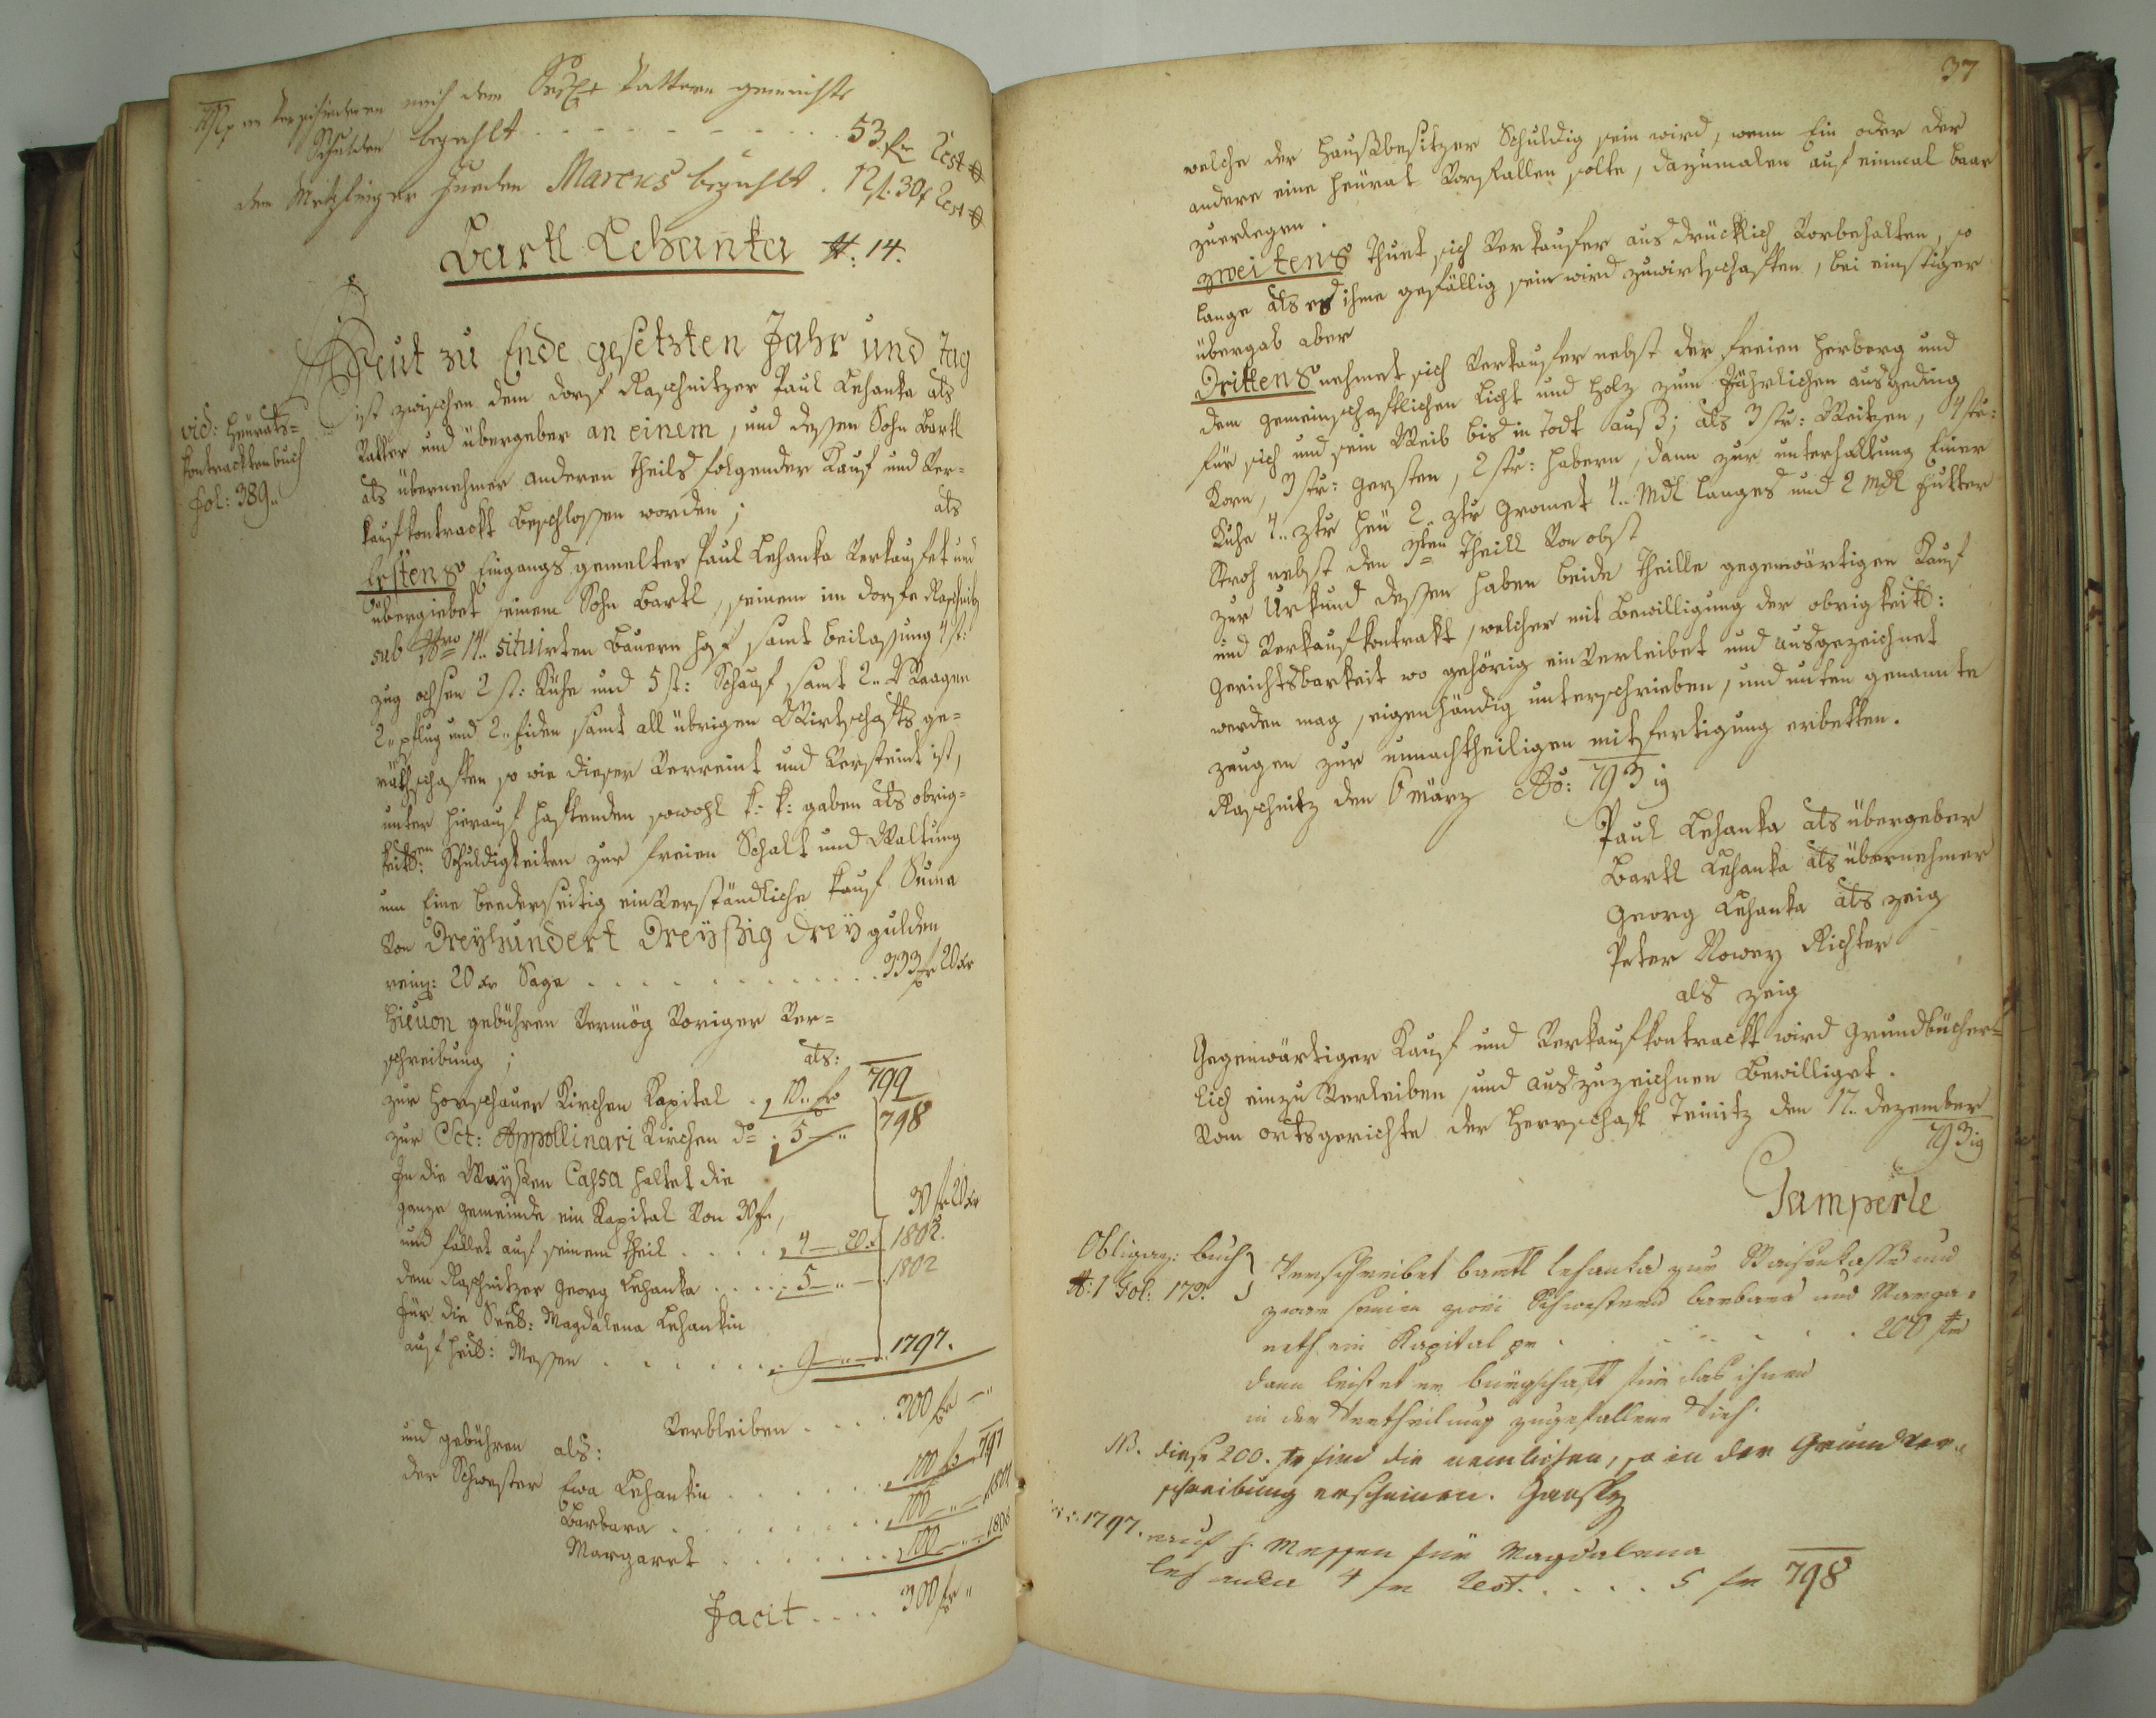 nach dem Vattern gemachte
Schulden bezahlt . . . . . . . . 53 fr Rest 0
dem Juden Marcus bezahlt . 12 f. 30 x Rest 0
Bartl Lehanka N: 14.
Heut zu Ende gesetzten Jahr und tag
ist zwischen dem dorf Raschnitzer Paul Lehanka als
Vatter und übergeber an einem, und dessen Sohn Bartl
als übernehmer anderen theils folgender Kauf und Ver=
kaufkontrackt beschlossen worden; als
vid: Heurats=
Kontracktenbuch
fol: 389..
Erstens Eingangs gemelter Paul Lehanka Verkaufet und
übergiebet seinem Sohn Bartl, seinem im dorfe Raschnitz
sub Nro 14.. situirten Bauern hof samt beilassung 4 st:
zug ochsen 2 st: Kühe und 5 st: Schaaf samt 2.. Waagen
2.. pflug und 2.. Eiden samt all übrigen Wirtschafts ge=
räthschaften so wie dieser Verreint und Versteint ist,
unter hierauf haftenden sowohl k: k: gaben als obrig=
keitl:en Schuldigkeiten zur freien Schalt und Waltung
um Eine beederseitig einVerständliche Kauf Suma
Von Dreyhundert Dreyßig drey gulden
reinisch: 20 xr Sage . . . . . . . . . . . 333 fr 20 xr
hieuon gebühren Vermög Voriger Ver=
schreibung; als:
zur Horschauer Kirchen Kapital . 10.. fr 799
zur Sct: Appollinari Kirchen do . 5 — .. 798
In die Waysen Cassa haltet die
ganze gemeinde ein Kapital Von 30 fr,
und fallet auf seinem theil . . . . 4 — 20.. 1802. 30 fr 20 xr
dem Raschnitzer Georg Lehanka . . . . . 5 — .. — 1802
für die Seel: Magdalena Lehankin
auf heil: Messen . . . . . . . 9 — .. — 1797.
Verbleiben . . . . 300 fr — ..
und gebühren als:
der Schwester Ewa Lehankin . . . . . . 100 fr 797
Barbara . . . . . . . . 100 — .. — 1801
Margaret . . . . . . . . 100 — .. — 1808
Facit . . . . 300 fr ..
37
welche der Haußbesitzer Schuldig sein wird, wenn Ein oder der
andere eine Heurat Vorfallen solte, dazumalen auf einmal baar
zuerlegen.
zweitens thuet sich Verkaufer ausdrücklich Vorbehalten, so
lange als es ihme gefällig sein wird zuwirtschaften, bei einstiger
übergab aber
Drittens nehmet sich Verkaufer nebst der freien Herberg und
dem gemeinschaftlichen Licht und Holz zum Jährlichen ausgeding
für sich und sein Weib bis in todt auß; als 3 str: Weitzen, 4 str:
Korn, 3 str: gersten, 2 str: habern, dann zur unterhaltung Einer
Kuhe 4.. ztr heü 2.. ztr Gromet 4.. Mdl langes und 2 Mdl futter
Stroh nebst den 3ten theill Von obst
zur Urkund dessen haben beide theille gegenwärtigen Kauf
und Verkaufkontrakt, welcher mit bewilligung der obrigkeitl:
Gerichtsbarkeit wo gehörig einVerleibet und ausgezeichnet
werden mag, eigenhändig unterschrieben, und unten genannte
zeugen zur unnachtheiligen mitfertigung erbetten.
Raschnitz den 6 März Ao: 793 ig
Paul Lehanka als übergeber
Bartl Lehanka als übernehmer
Georg Lehanka als zeig
Peter Nowey Richter
als zeig
Gegenwärtiger Kauf und Verkaufkontrackt wird grundbücher=
lich einzuVerleiben, und auszuzeichnen bewilliget.
Vom ortsgerichte der Herrschaft Teinitz den 17.. dezember
793 ig
Gamperle
Obligaz: buch
N: 1 Fol: 173.
Verschreibet bartl lehanka zur Waisenkassa und
zwar seinen zwei Schwestern barbara und Marga=
reth ein Kapital pr . . . . . . . . 200 fr
dann leistet er bürgschaft für das ihnen
in der Vertheilung zugefallene Vieh.
NB. diese 200. fr sind die nemlichen, so in der Grundver=
schreibung erscheinen.
1797. auf h. Messen für Magdalena
lehanka 4 fr Rest. . . . . 5 fr 798